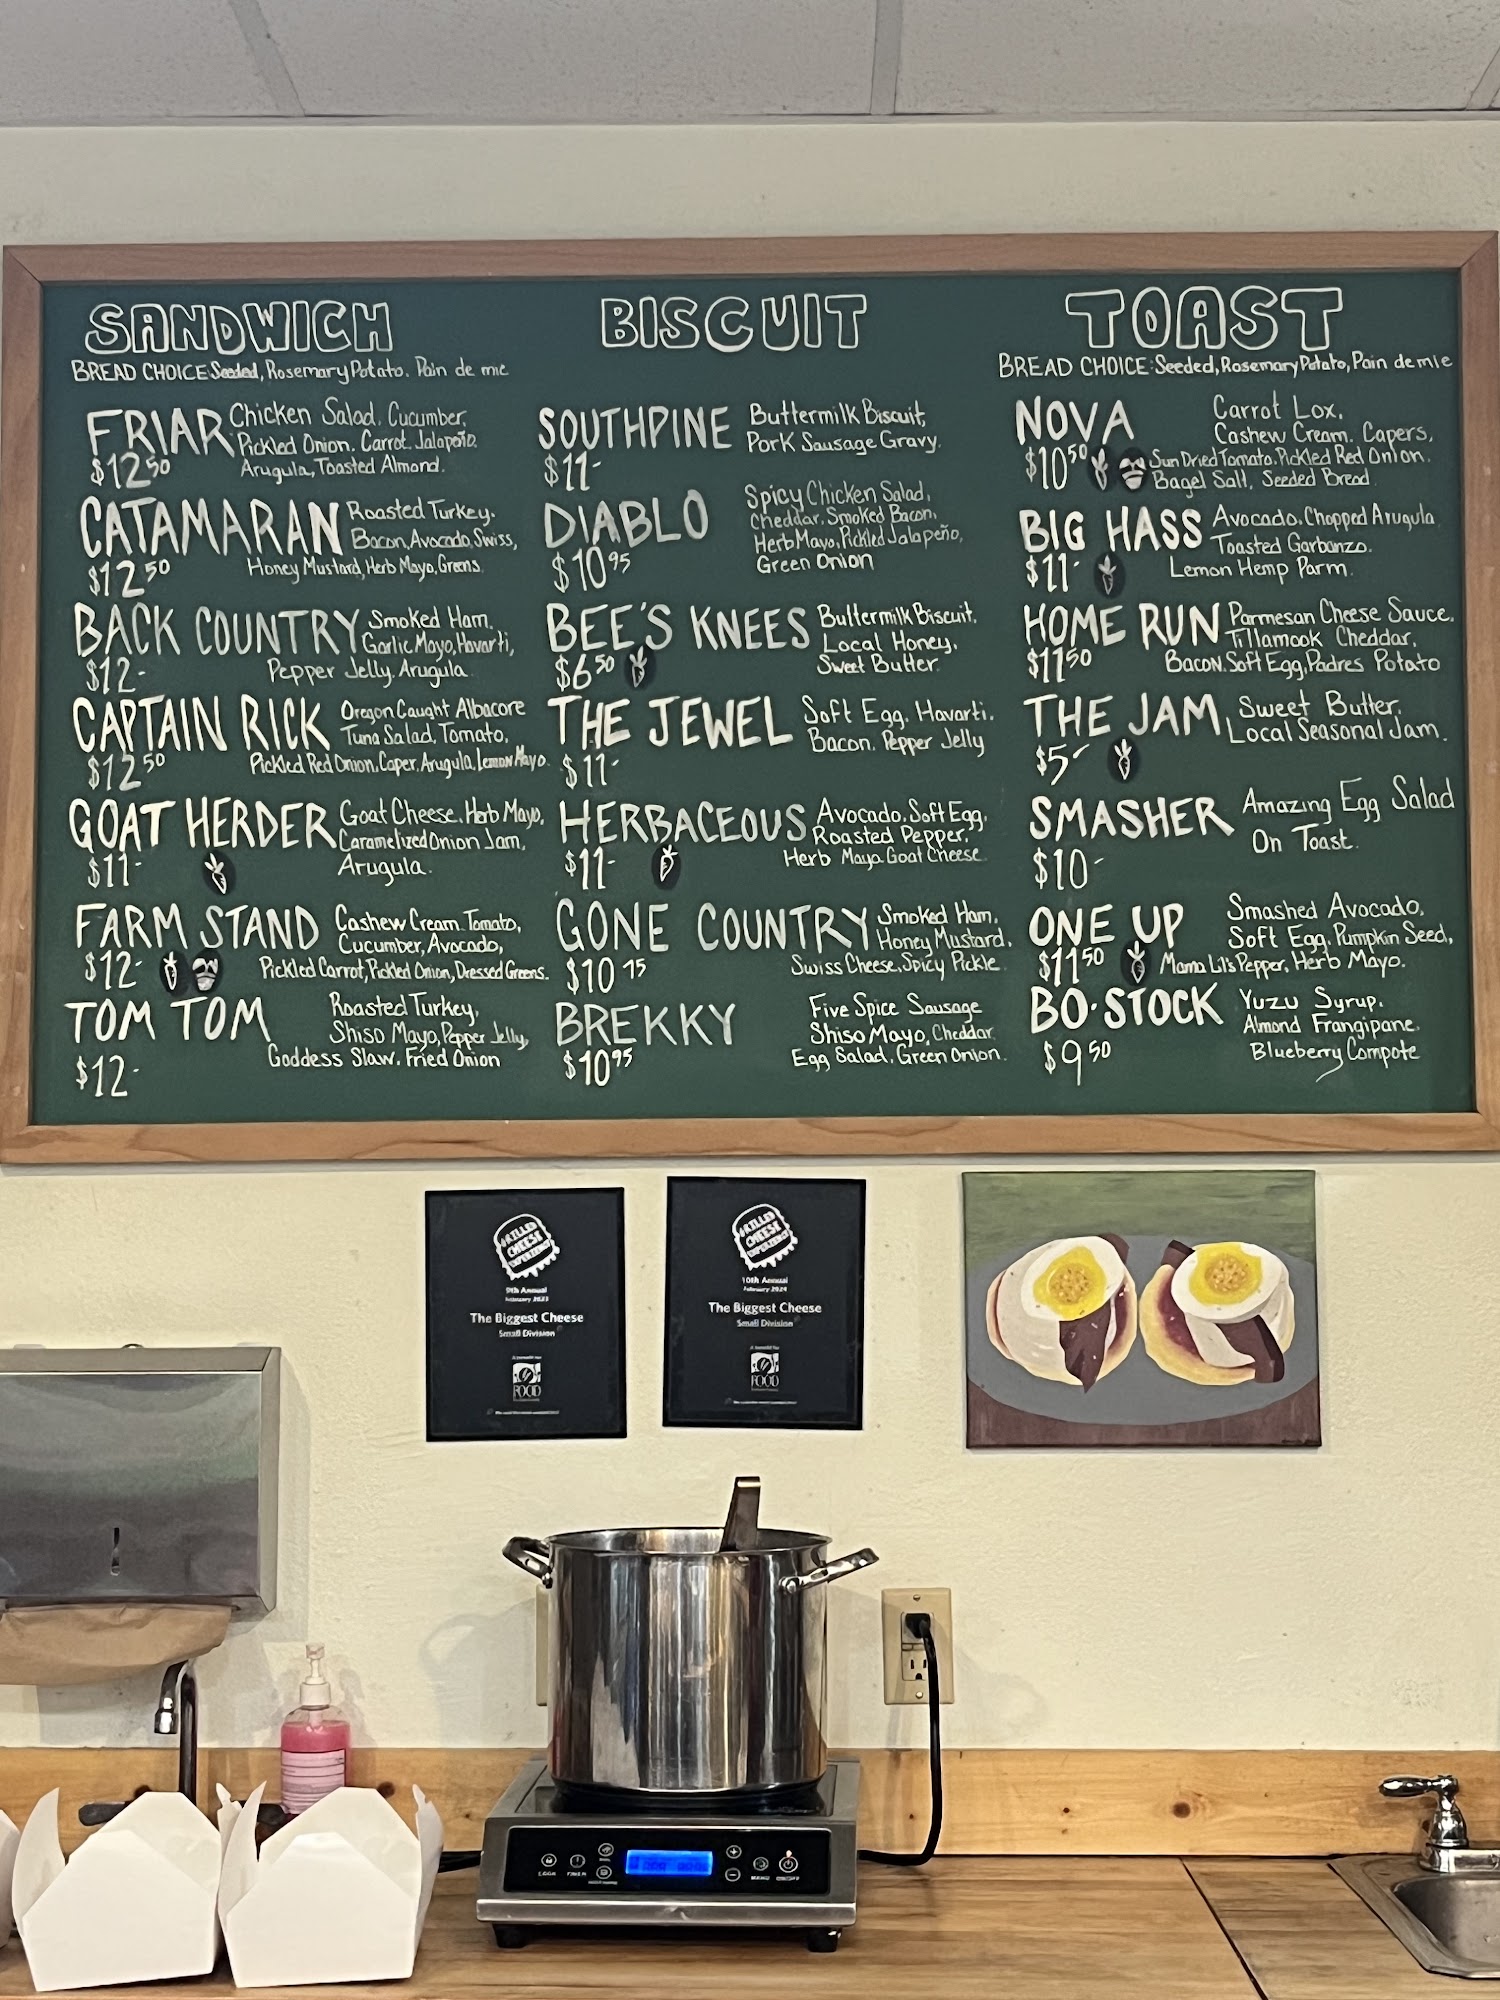 SANDWICH
BREAD CHOICE: Seeded, Rosemary Potato. Pain de mie
FRIAR Chicken Salad, Cucumber,
Pickled Onion, Carrot, Jalapeño.
$12.50 Arugula, Toasted Almond.
CATAMARAN Roasted Turkey,
Bacon, Avocado, Swiss,
$12.50 Honey Mustard, Herb Mayo, Greens.
BACK COUNTRY Smoked Ham,
Garlic Mayo, Havarti,
$12- Pepper Jelly, Arugula
CAPTAIN RICK Oregon Caught Albacore
Tuna Salad, Tomato,
$12.50 Pickled Red Onion, Caper, Arugula, Lemon Mayo.
GOAT HERDER Goat Cheese, Herb Mayo,
Caramelized Onion Jam,
$11- Arugula.
FARM STAND Cashew Cream, Tomato,
Cucumber, Avocado,
$12- Pickled Carrot, Pickled Onion, Dressed Greens.
TOM TOM Roasted Turkey,
Shiso Mayo, Pepper Jelly,
Goddess Slaw, Fried Onion
$12-
BISCUIT
SOUTHPINE Buttermilk Biscuit,
Pork Sausage Gravy.
$11-
DIABLO Spicy Chicken Salad,
Cheddar, Smoked Bacon,
Herb Mayo, Pickled Jalapeño,
$10.95 Green Onion
BEE'S KNEES Buttermilk Biscuit,
Local Honey,
$6.50 Sweet Butter
THE JEWEL Soft Egg, Havarti,
Bacon, Pepper Jelly
$11-
HERBACEOUS Avocado, Soft Egg,
Roasted Pepper,
$11- Herb Mayo Goat Cheese
GONE COUNTRY Smoked Ham,
Honey Mustard,
$10.95 Swiss Cheese, Spicy Pickle
BREKKY Five Spice Sausage
Shiso Mayo, Cheddar
$10.95 Egg Salad, Green Onion.
TOAST
BREAD CHOICE: Seeded, Rosemary Potato, Pain de mie
NOVA Carrot Lox,
Cashew Cream, Capers,
$10.50 Sun Dried Tomato, Pickled Red Onion.
Bagel Salt, Seeded Bread
BIG HASS Avocado, Chopped Arugula
Toasted Garbanzo.
$11- Lemon Hemp Parm.
HOME RUN Parmesan Cheese Sauce,
Tillamook Cheddar,
$11.50 Bacon, Soft Egg, Padres Potato
THE JAM Sweet Butter,
Local Seasonal Jam.
$5-
SMASHER Amazing Egg Salad
On Toast.
$10-
ONE UP Smashed Avocado,
Soft Egg, Pumpkin Seed,
$11.50 Mama Lil's Pepper, Herb Mayo.
BO·STOCK Yuzu Syrup,
Almond Frangipane,
$9.50 Blueberry Compote
GRILLED
CHEESE
EXPERIENCE
9th Annual
February 2023
The Biggest Cheese
Small Division
FOOD
GRILLED
CHEESE
EXPERIENCE
10th Annual
February 2024
The Biggest Cheese
Small Division
FOOD